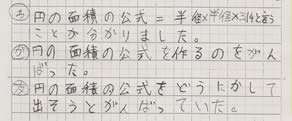 あ円の面積の公式=半径×半径×3.14と言う
ことが分かりました。
か円の面積の公式を作るのをがん
ばった。
友円の面積の公式をどうにかして
出そうとがんばっていた。